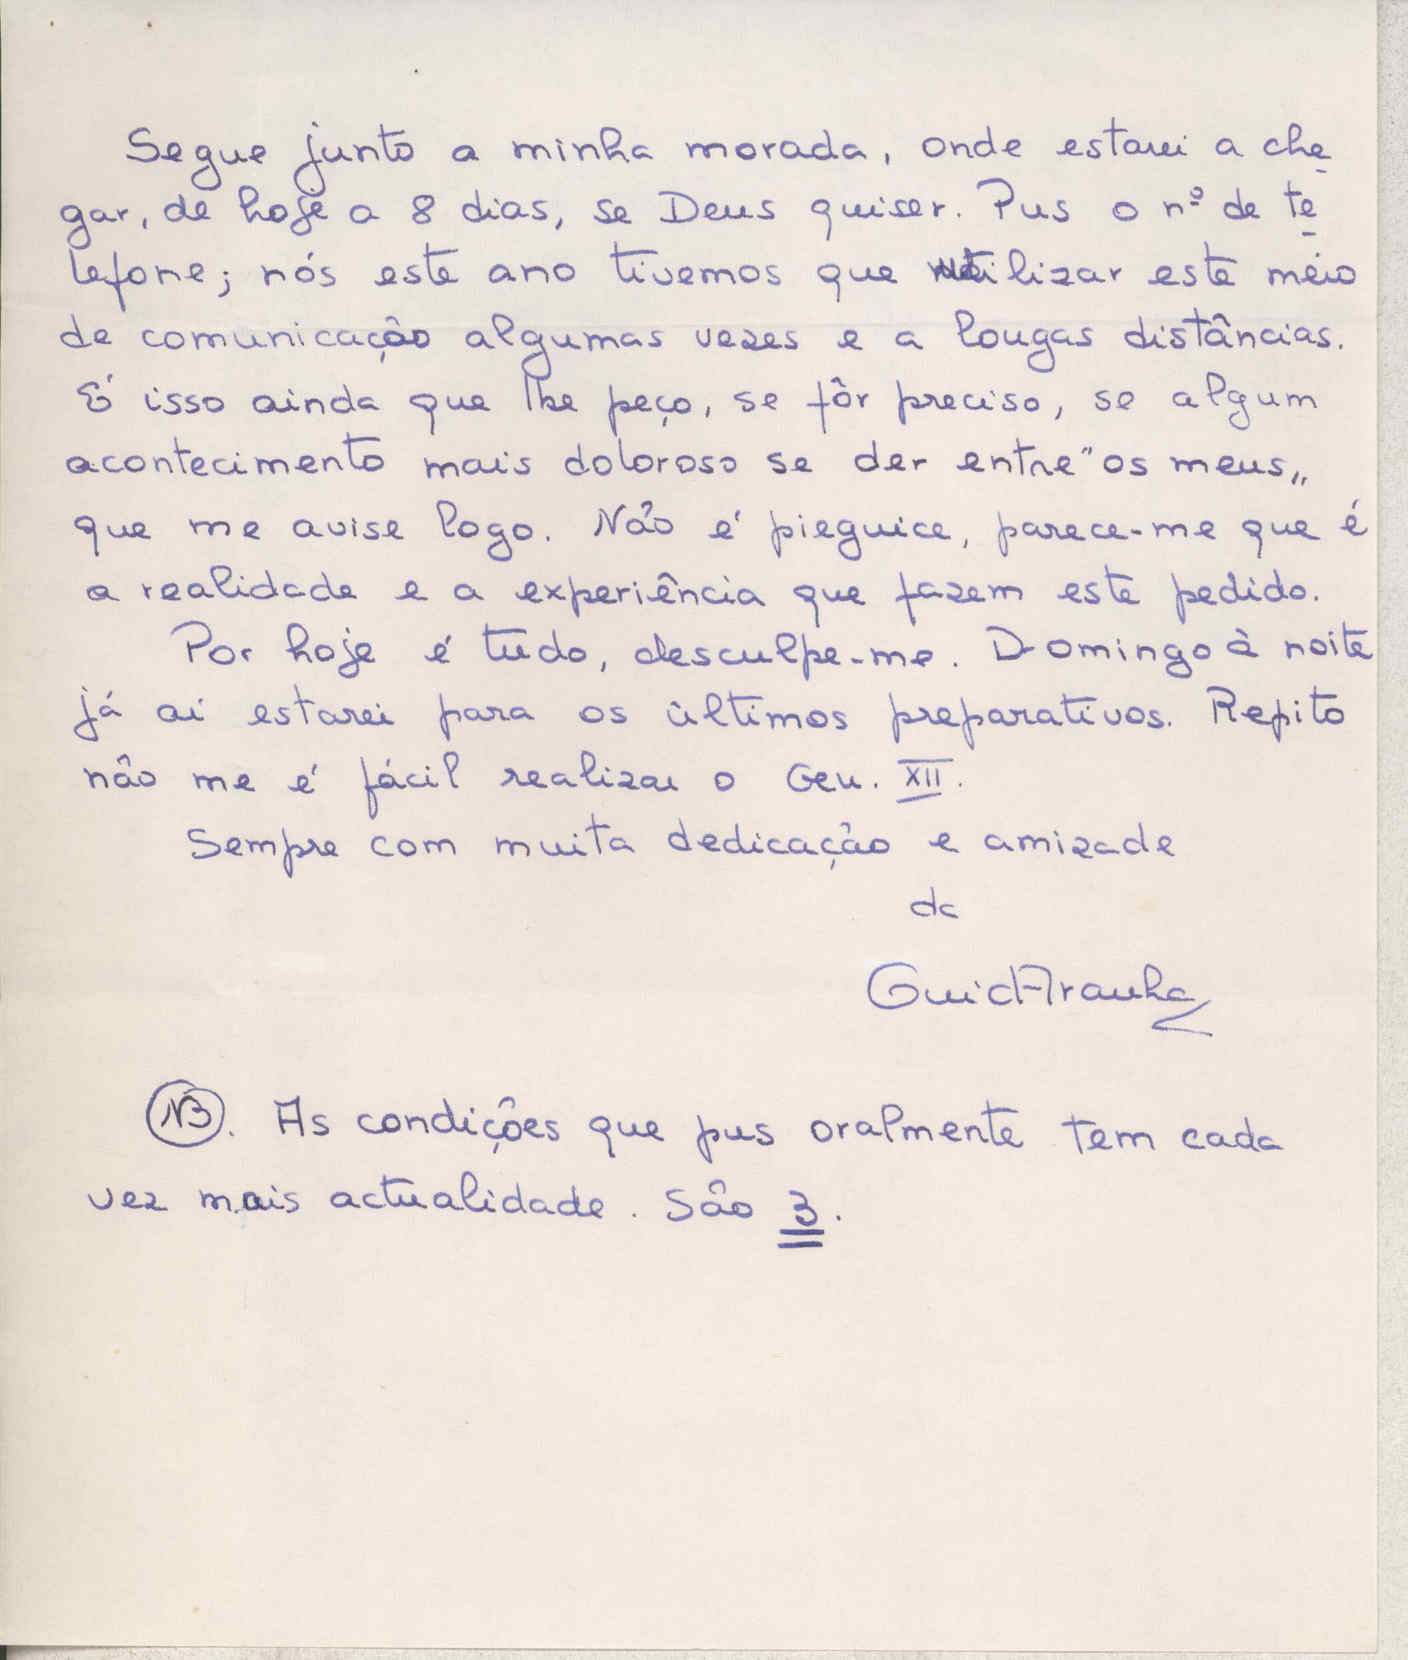 Segue junto a minha morada, onde estarei a che
gar, de hoje a 8 dias, se Deus quiser. Pus o nº de te
lefone; nós este ano tivemos que utilizar este meio
de comunicação algumas vezes e a longas distâncias.
É isso ainda que lhe peço, se fôr preciso, se algum
acontecimento mais doloroso se der entre "os meus"
que me avise logo. Não é pieguice, parece-me que é
a realidade e a experiência que fazem este pedido.
Por hoje é tudo, desculpe-me. Domingo à noite
já aí estarei para os últimos preparativos. Repito
não me é fácil realizar o Gen. XII.
Sempre com muita dedicação e amizade
da
GuidAranha
NB. As condições que pus oralmente tem cada
vez mais actualidade. São 3.